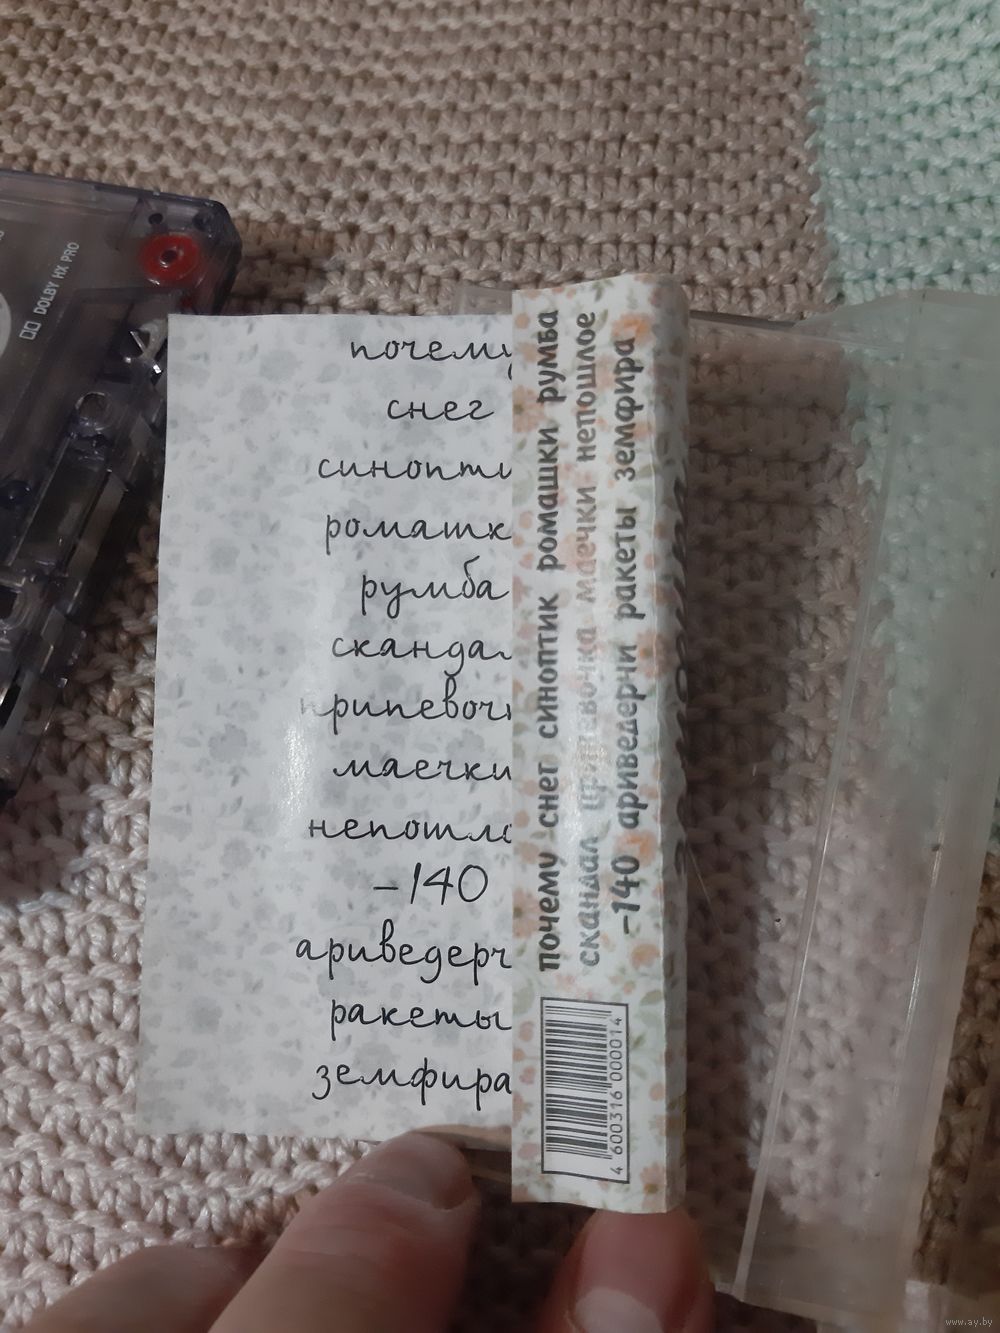 DOLBY HX PRO
почему
снег
синопти
ромашк
румба
скандал
припевочк
маечки
непошло
-140
ариведерч
ракеты
земфира
почему снег синоптик ромашки румба
скандал припевочка маечки непошлое
-140 ариведерчи ракеты земфира
4 600316 000014
www.ay.by